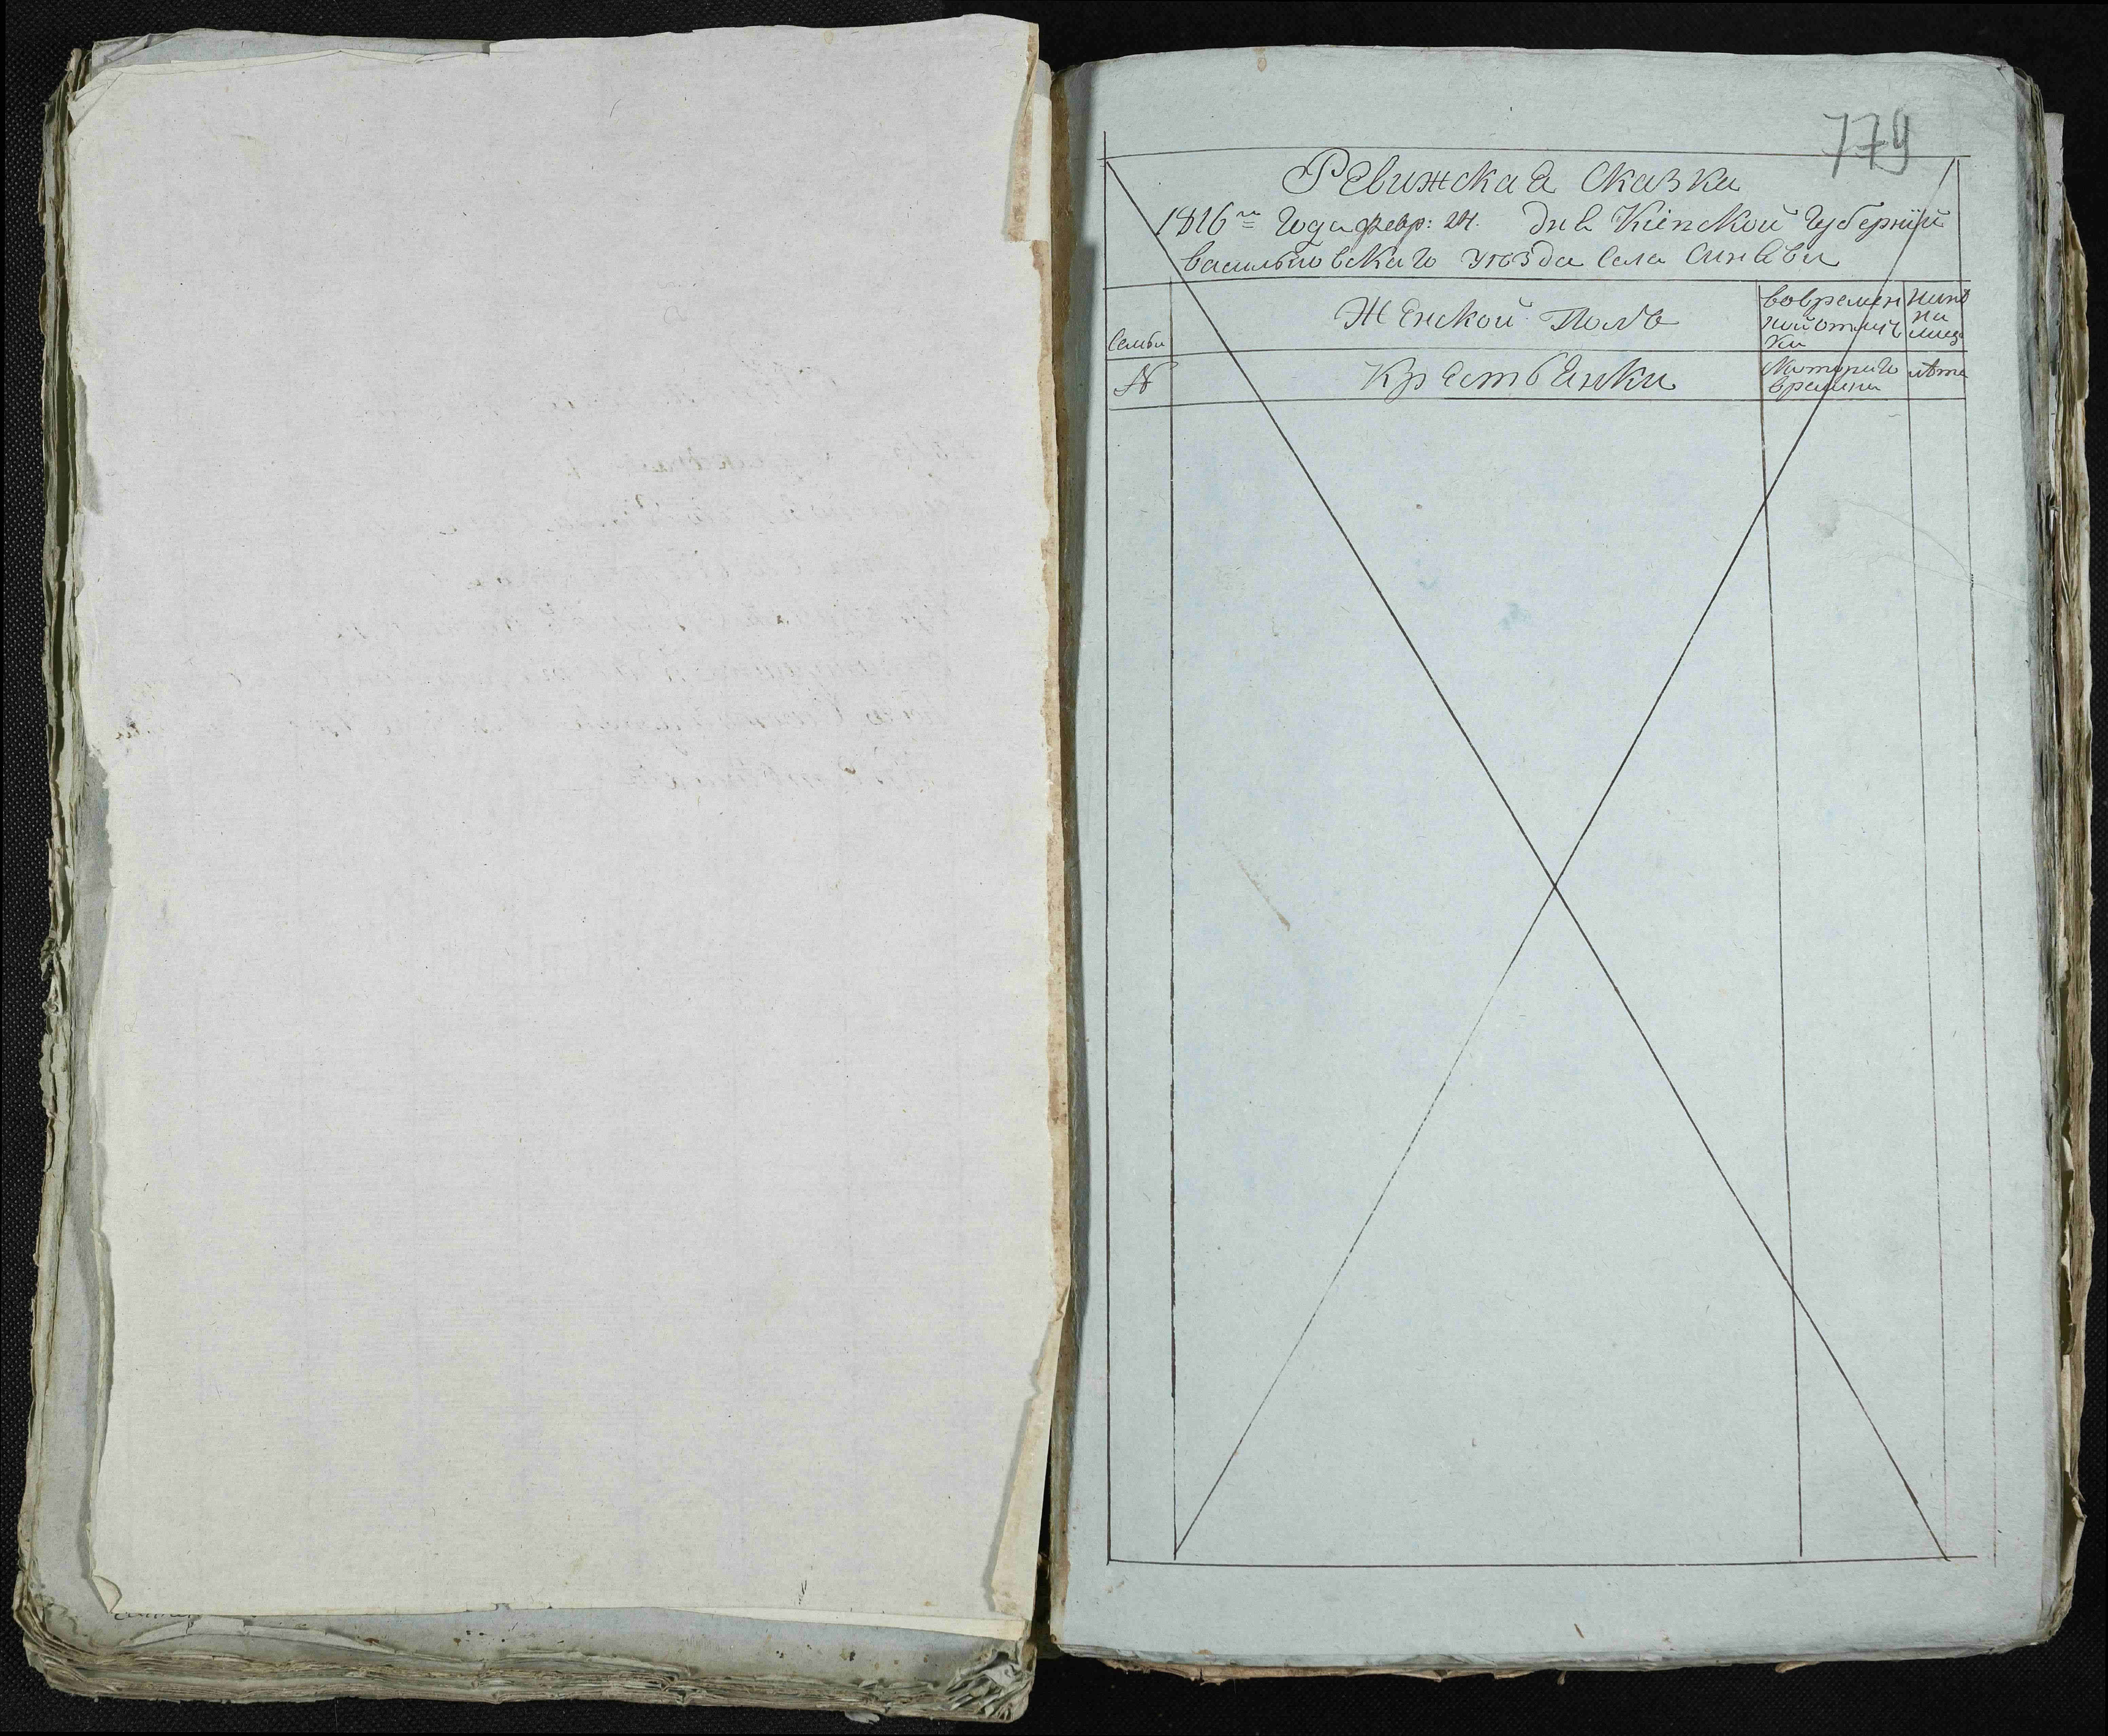 779
Ревижская Сказка
1816го Года февр: 24. дня Кіевской Губерніи
васильковскаго уезда села синявы
Семьи
Женской Полъ
вовремен
ной отлуч
ки
нинѣ
на
лицо
№
Крестьянки
скотораго
времени
лѣта